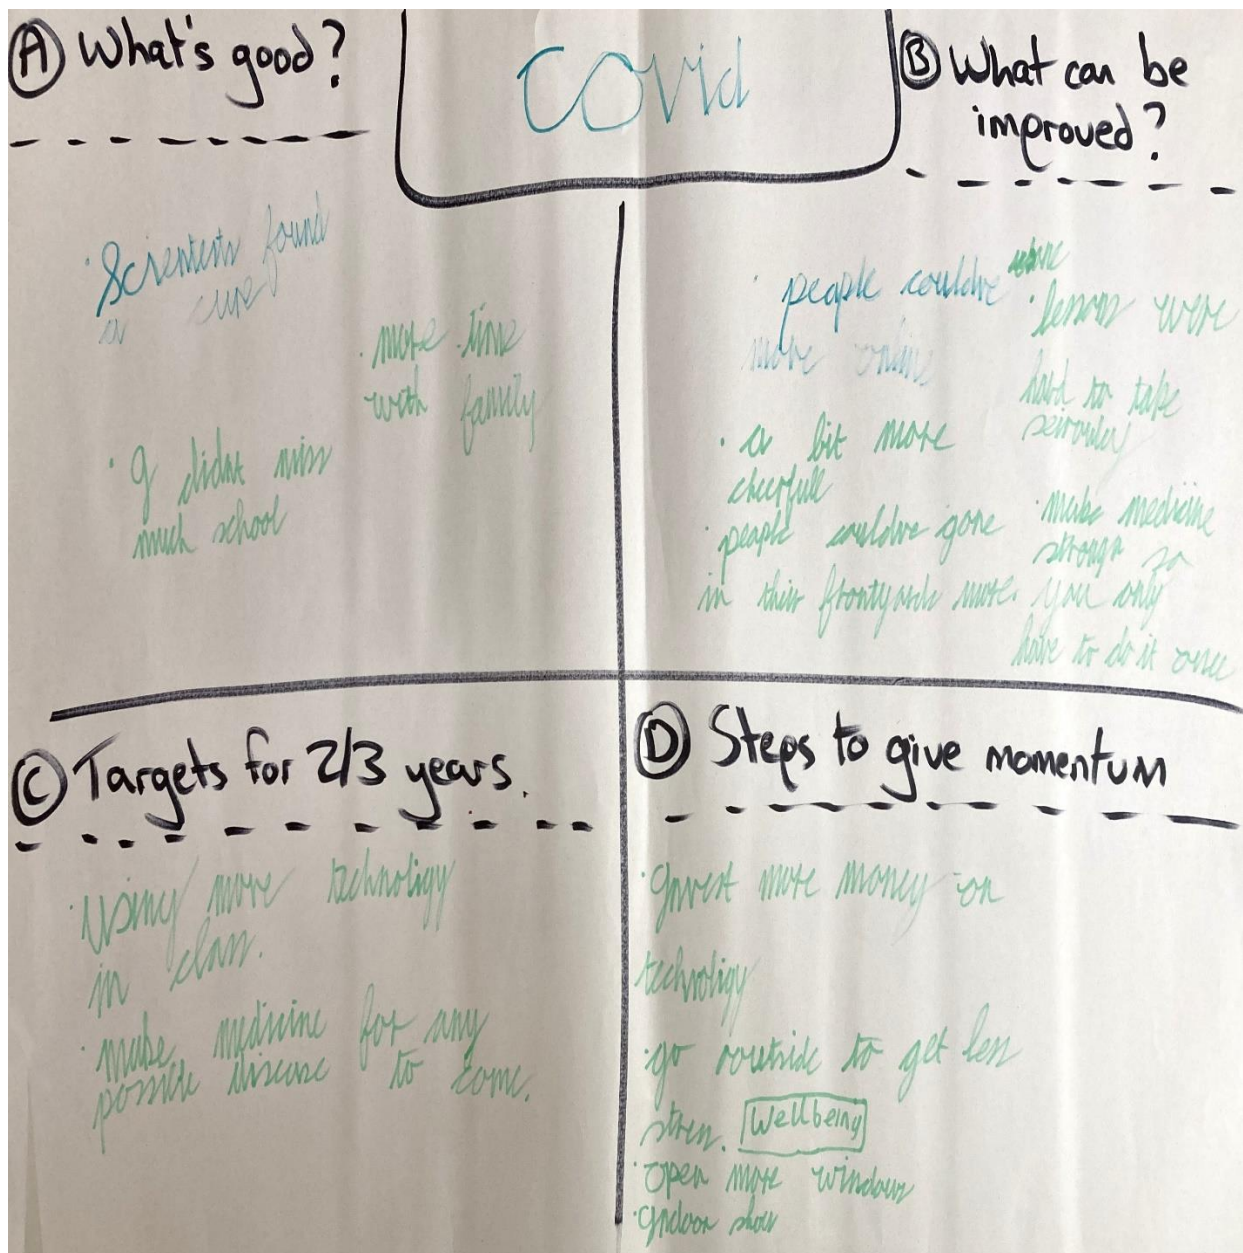 Covid
Ⓐ What's good?
· Scientists found
a cure
· more time
with family
· I didnt miss
much school
Ⓑ What can be
improved?
· people couldve
more online
· a bit more
cheerfull
· people couldve gone
in thier frontyards more.
· lessons were
hard to take
· make medicine
stronger so
you only
have to do it once
Ⓒ Targets for 2/3 years.
· Using more technoligy
in class.
· make medicine for any
possible disease to come.
Ⓓ Steps to give momentum
· Invest more money on
technoligy
· go outside to get less
stress. Wellbeing
· open more windows
· Indoor